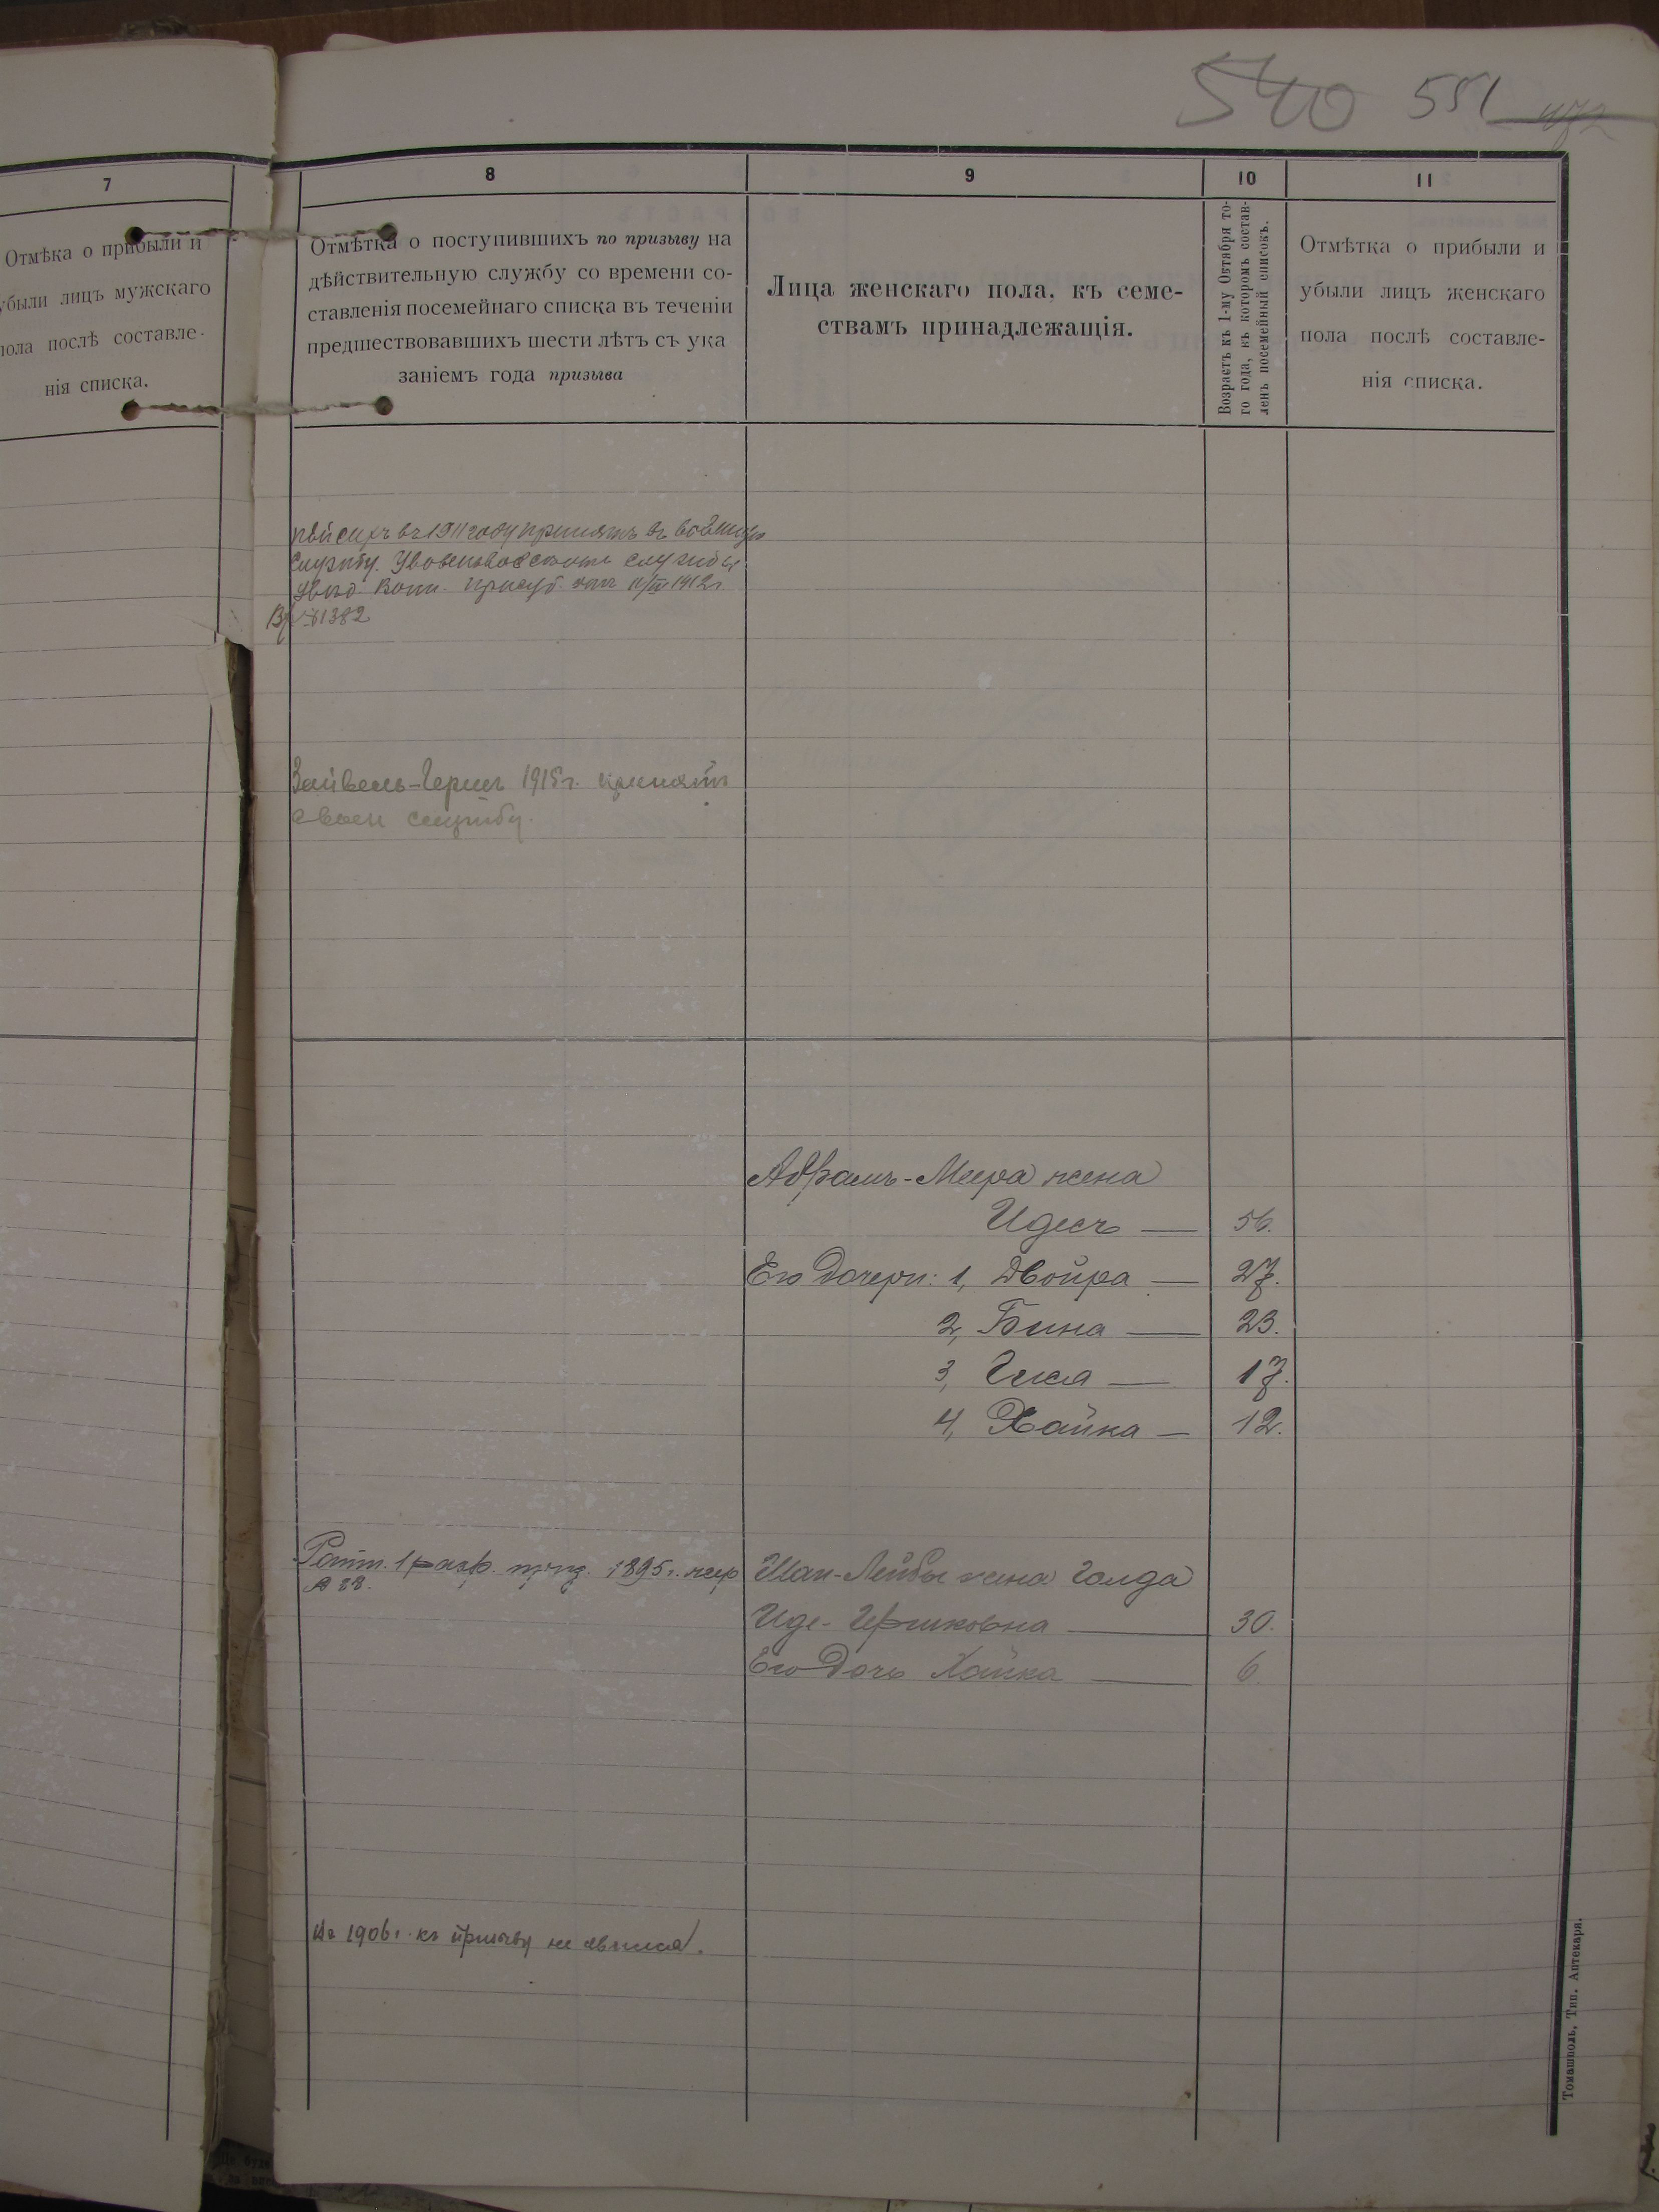 540 551
7
Отмѣка о прибыли и
убыли лицъ мужскаго
пола послѣ составле-
нія списка.
8
Отмѣтка о поступившихъ по призыву на
дѣйствительную службу со времени со-
ставленія посемейнаго списка въ теченіи
предшествовавшихъ шести лѣтъ съ ука
заніемъ года призыва
9
Лица женскаго пола, къ семе-
ствамъ принадлежащія.
10
Возрастъ къ 1-му Октября то-
го года, въ которомъ состав-
ленъ посемейный списокъ.
11
Отмѣтка о прибыли и
убыли лицъ женскаго
пола послѣ составле-
нія списка.
въ 1911 году принятъ въ
службу.
1912г.
№1382
Зайвель-Герш 1915г. принятъ
службу.
Абрамъ-Меера жена
Идесъ — 56.
Его дочери: 1, Двойра — 27.
2, Бина — 23.
3, Гися — 17.
4, Хайка — 12.
Ратн. 1 разр. 1895г. жер
№ 88.
Шаи-Лейбы жена Голда
Иде-Гершковна — 30.
Его дочь Хайка — 6.
Въ 1906г. къ призыву не явился.
Томашполь, Тип. Аптекаря.